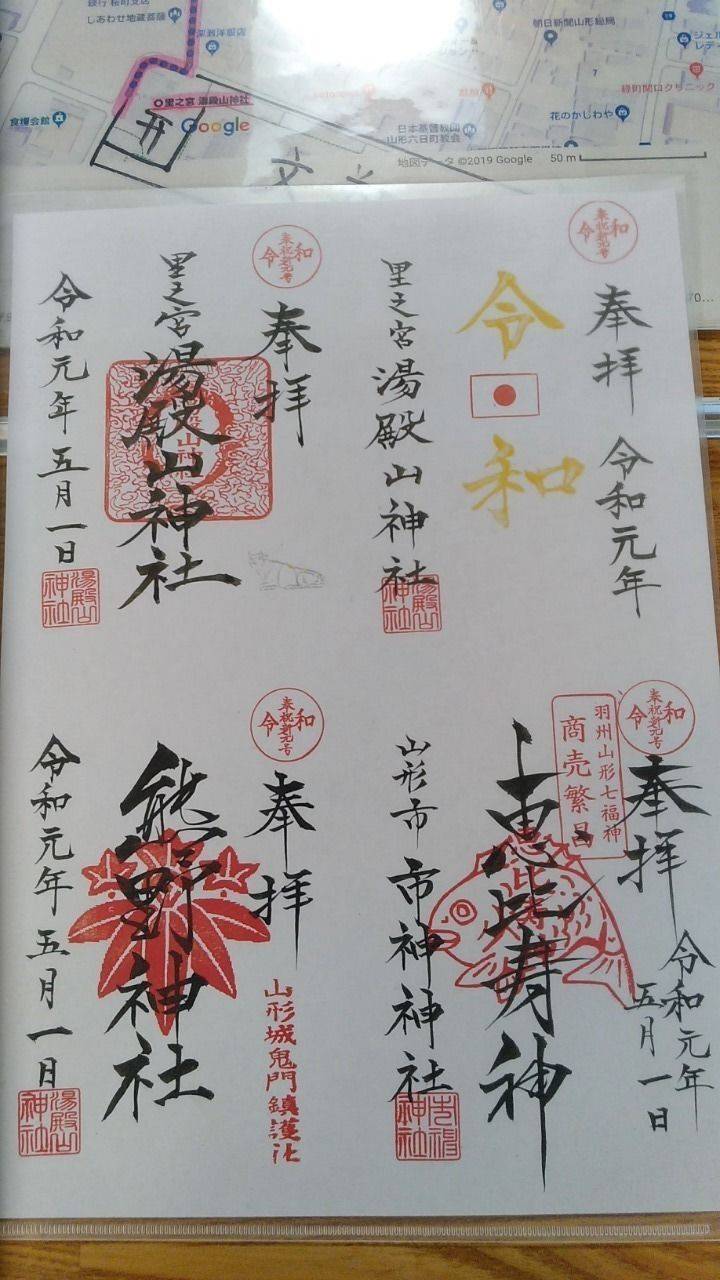 銀行 桜町支店
しあわせ地蔵菩薩
深瀬洋服店
朝日新聞山形総局
ジェル
レデ
里之宮 湯殿山神社
食糧会館
Google
日本基督教団
山形六日町教会
花のかしわや
緑町関口クリニック
地図データ ©2019 Google
50 m
奉祝新元号
令和
奉拝
令和元年
令和
里之宮 湯殿山神社
湯殿山
神社
奉祝新元号
令和
奉拝
里之宮
湯殿山神社
令和元年 五月一日
湯殿山
神社
奉祝新元号
令和
奉拝
羽州山形七福神
商売繁昌
恵比寿神
令和元年
五月一日
山形市 市神神社
市神
神社
奉祝新元号
令和
奉拝
山形城鬼門鎮護社
熊野神社
令和元年 五月一日
湯殿山
神社